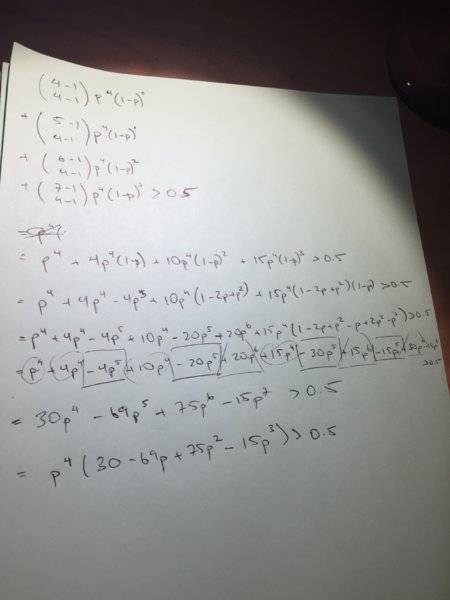 (4-1 4-1) p⁴(1-p)⁰
+ (5-1 4-1) p⁴(1-p)¹
+ (6-1 4-1) p⁴(1-p)²
+ (7-1 4-1) p⁴(1-p)³ > 0.5
= p⁴ + 4p⁴(1-p) + 10p⁴(1-p)² + 15p⁴(1-p)³ > 0.5
= p⁴ + 4p⁴ - 4p⁵ + 10p⁴(1-2p+p²) + 15p⁴(1-2p+p²)(1-p) > 0.5
= p⁴ + 4p⁴ - 4p⁵ + 10p⁴ - 20p⁵ + 20p⁶ + 15p⁴(1-2p+p²-p+2p²-p³) > 0.5
= p⁴ + 4p⁴ - 4p⁵ + 10p⁴ - 20p⁵ + 20p⁶ + 15p⁴ - 30p⁵ + 15p⁶ - 15p⁵ + 30p⁶ - 15p⁷ > 0.5
= 30p⁴ - 69p⁵ + 75p⁶ - 15p⁷ > 0.5
= p⁴(30 - 69p + 75p² - 15p³) > 0.5